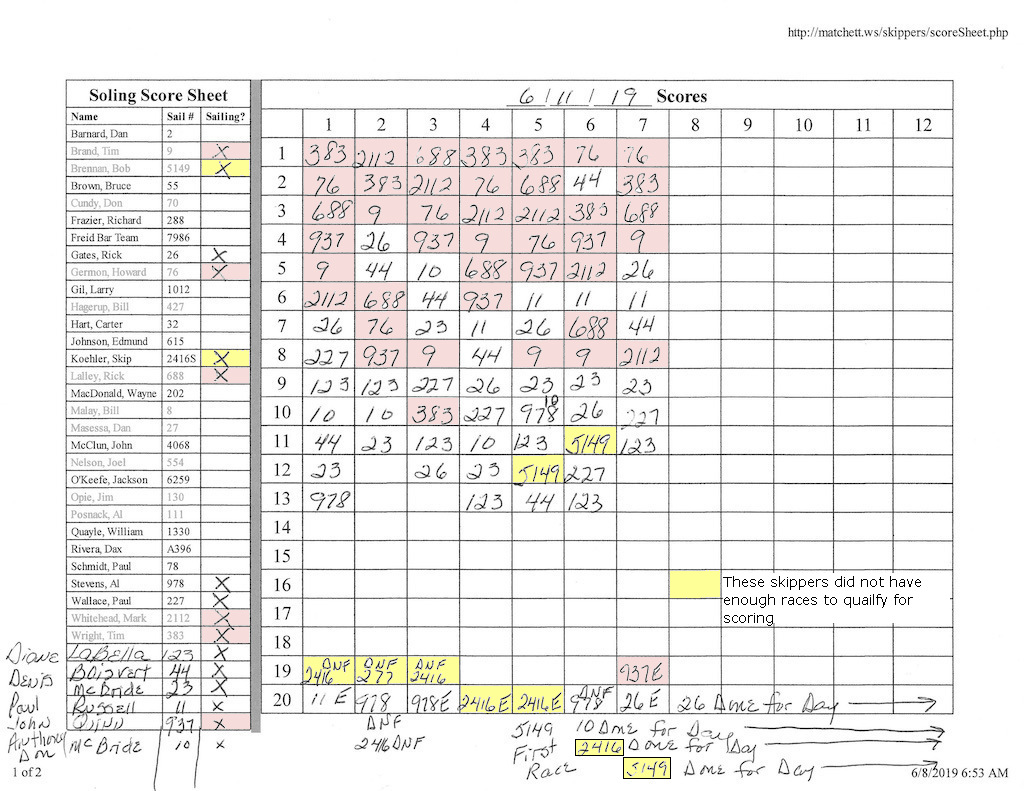 http://matchett.ws/skippers/scoreSheet.php
Soling Score Sheet
6/11/19 Scores
Name Sail # Sailing?
Barnard, Dan 2
Brand, Tim 9 X
Brennan, Bob 5149 X
Brown, Bruce 55
Cundy, Don 70
Frazier, Richard 288
Freid Bar Team 7986
Gates, Rick 26 X
Germon, Howard 76 X
Gil, Larry 1012
Hagerup, Bill 427
Hart, Carter 32
Johnson, Edmund 615
Koehler, Skip 2416S X
Lalley, Rick 688 X
MacDonald, Wayne 202
Malay, Bill 8
Masessa, Dan 27
McClun, John 4068
Nelson, Joel 554
O'Keefe, Jackson 6259
Opie, Jim 130
Posnack, Al 111
Quayle, William 1330
Rivera, Dax A396
Schmidt, Paul 78
Stevens, Al 978 X
Wallace, Paul 227 X
Whitehead, Mark 2112 X
Wright, Tim 383 X
Diane LaBella 123 X
Denis Boisvert 44 X
McBride 23 X
Paul Russell 11 X
John Quinn 937 X
Anthony
Don McBride 10 X
1 2 3 4 5 6 7 8 9 10 11 12
1 383 2112 688 383 383 76 76
2 76 383 2112 76 688 44 383
3 688 9 76 2112 2112 383 688
4 937 26 937 9 76 937 9
5 9 44 10 688 937 2112 26
6 2112 688 44 937 11 11 11
7 26 76 23 11 26 688 44
8 227 937 9 44 9 9 2112
9 123 123 227 26 23 23 23
10 10 10 383 227 978 10 26 227
11 44 23 123 10 123 5149 123
12 23 26 23 5149 227
13 978 123 44 123
14
15
16
These skippers did not have
enough races to qualify for
scoring
17
18
19 DNF 2416 DNF 277 DNF 2416 937E
20 11 E 978 978E 2416E 2416E DNF 978 26 E 26 Done for Day
DNF
2416 DNF
5149
First
Race
10 Done for Day
2416 Done for Day
5149 Done for Day
1 of 2
6/8/2019 6:53 AM